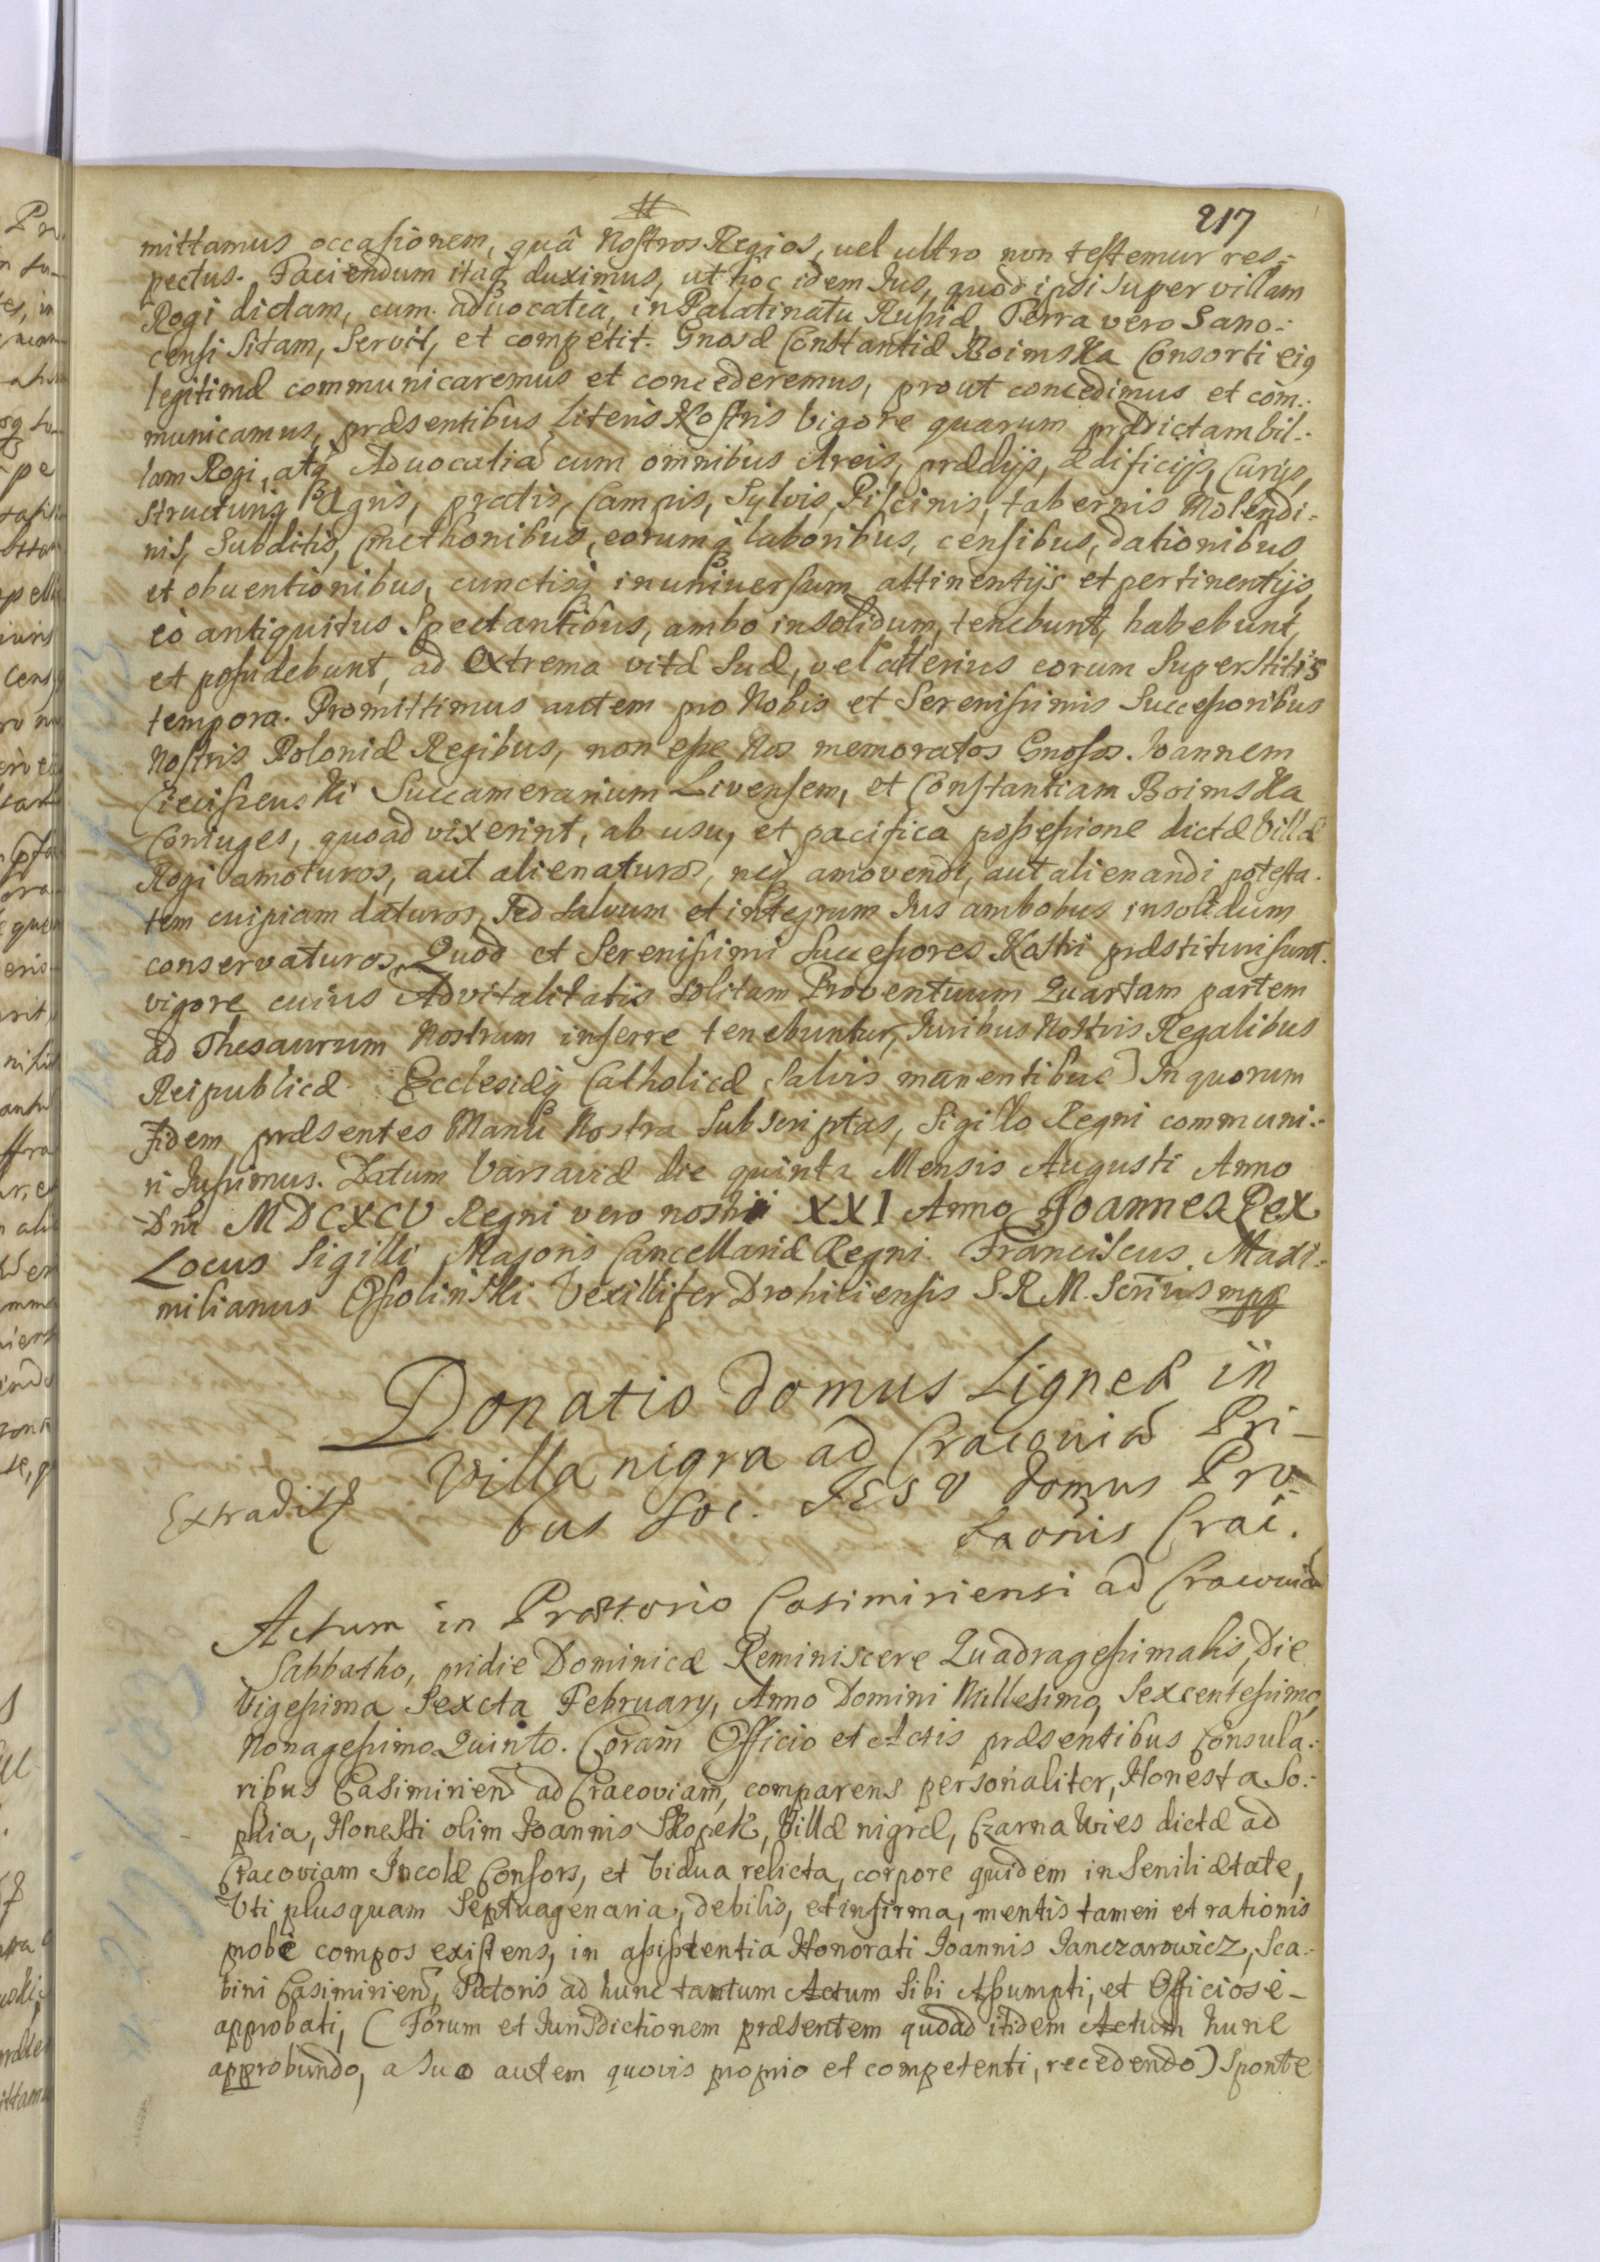 217
mittamus occasionem, quâ Nostros Regios, uel ultro non testemur res-:
pectus. Faciendum itaq duximus, ut hoc idem Ius, quod ipsi super villam
Rogi dictam, cum aduocatia, in Palatinatu Russiæ, Terra vero Sano-:
censi sitam, Servit, et competit. Gnosæ Constantiæ Boimska Consorti eig
legitimæ communicaremus et concederemus, prout concedimus et com-:
municamus, præsentibus literis Nostris vigore quarum prædictam vil-:
lam Rogi, atq Aduocatiã cum omnibus Areis, prædijs, ædificijs, Curijs,
structurisq Agris, pratis, Campis, Sylvis, Piscinis, tabernis Molendi-:
nis, Subditis, Cmethonibus, eorumq laboribus, censibus, dationibus,
et obuentionibus, cunctisq in uniuersum attinentijs et pertinentijs,
eò antiquitus Spectantibus, ambo insolidum, tenebunt, habebunt,
et possidebunt, ad extrema vitæ suæ, vel alterius eorum Superstitis
tempora. Promittimus autem pro Nobis et Serenissimis Successoribus
Nostris Poloniæ Regibus, non esse Nos memoratos Gnosos. Ioannem
Cieciszeuski Succamerarium Livensem, et Constantiam Boimska
Coniuges, quoad vixerint, ab usu, et pacifica possessione dictæ Villæ
Rogi amoturos, aut alienaturos, neq amovendi, aut alienandi potesta-
tem cuipiam daturos, Sed salvum et integrum Ius ambobus insolidum
conservaturos, Quod et Serenissimi Successores Nostri præstituri sunt.
vigore cuius Advitalitatis solitam Proventuum Quartam partem
ad Thesaurum Nostrum inferre tenebuntur, Iuribus Nostris Regalibus
Reipublicæ Ecclesiæq Catholicæ salvis manentibus) In quorum
Fidem præsentes Manu Nostra Subscriptas, Sigillo Regni communi-:
ri Iussimus. Datum Varsaviæ die quinta Mensis Augusti Anno
Dni MDCXCV Regni vero nostri XXI Anno Joannes Rex
Locus Sigilli Majoris Cancellariæ Regni. Franciscus Maxi-:
milianus Ossolinski Vexillifer Drohiciensis S.R.M. Scrius mpp
Donatio domus Ligneæ in
Villa nigra ad Cracouiã Pri-
Extradit
bus Soc. JESV domus Pro-
baonis Crac.
Actum in Prætorio Casimiriensi ad Cracouiã
Sabbatho, pridie Dominicæ Reminiscere Quadragessimalis, Die
Vigessima Sexcta February, Anno Domini Millesimo, Sexcentessimo,
Nonagessimo Quinto. Coram Officio et Actis præsentibus Consula-:
ribus Casimirien ad Cracoviam, comparens personaliter, Honesta So-:
phia, Honesti olim Joannis Skopek, Villæ nigræ, Czarna wies dictæ ad
Cracoviam Incolæ Consors, et vidua relicta, corpore quidem in senili ætate,
Vti plusquam Septuagenaria, debilis, et infirma, mentis tamen et rationis
probè compos existens, in assistentia Honorati Joannis Janczarowicz, Sca-:
bini Casimirien, Tutoris ad hunc tantum Actum sibi Assumpti, et Officiosè-
approbati, (Forum et Iurisdictionem præsentem quoad itidem Actum hunc
approbando, a suo autem quovis proprio et competenti, recedendo) sponte